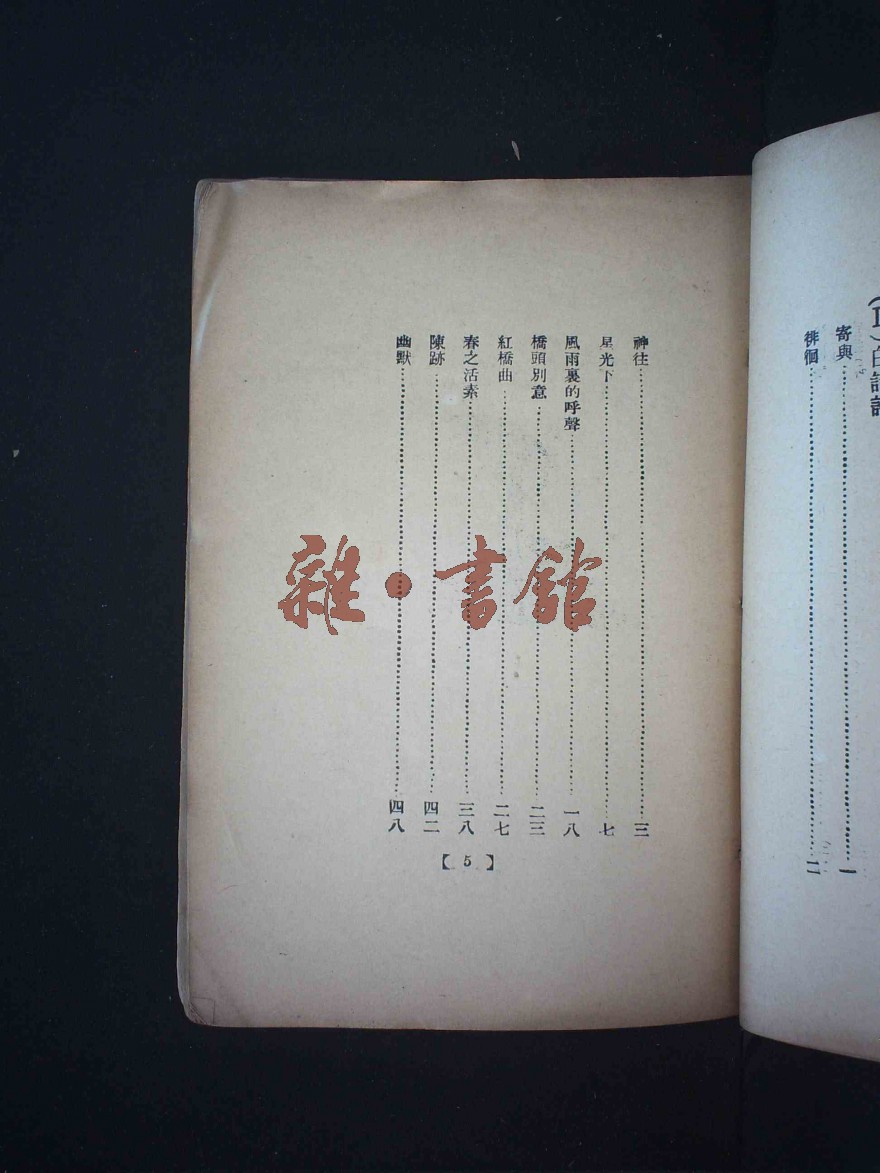 寄與……………………一
徘徊……………………二
神往……………………三
星光下……………………七
風雨裏的呼聲……………………一八
橋頭別意……………………二三
紅橋曲……………………二七
春之活素……………………三八
陳跡……………………四二
幽默……………………四八
【5】
雜·書館